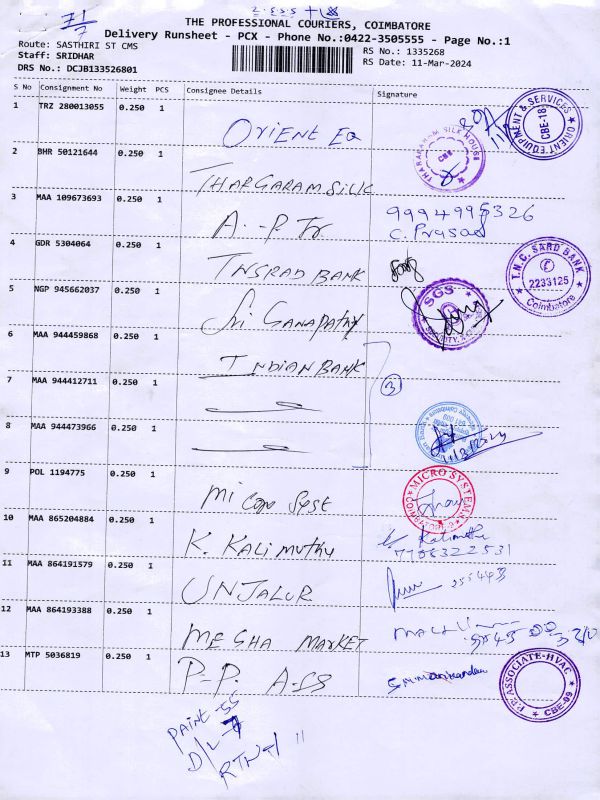 THE PROFESSIONAL COURIERS, COIMBATORE
Delivery Runsheet - PCX - Phone No.:0422-3505555 - Page No.:1
Route: SASTHIRI ST CMS
RS No.: 1335268
Staff: SRIDHAR
RS Date: 11-Mar-2024
DRS No.: DCJB133526801
S No Consignment No Weight PCS Consignee Details Signature
1 TRZ 280013055 0.250 1 ORIENT EQ
ORIENT EQUIPMENT & SERVICES CBE-18
2 BHR 50121644 0.250 1 THARGARAM SILK
THARAGARAM SILK HOUSE CBE
3 MAA 109673693 0.250 1 A.-P Tr
9994995326
C. Prasad
4 GDR 5304064 0.250 1 TNSRAD BANK
T.N.C. SARD BANK 2233125 Coimbatore
5 NGP 945662037 0.250 1 Sri GANAPATHY
SGS
6 MAA 944459868 0.250 1 INDIAN BANK
7 MAA 944412711 0.250 1
3
8 MAA 944473966 0.250 1
9 POL 1194775 0.250 1 Micro Syst
MICRO SYSTEMS
10 MAA 865204884 0.250 1 K. KALIMUTHU
Kalimuthu
7708322531
11 MAA 864191579 0.250 1 UNJALUR
12 MAA 864193388 0.250 1 MEGHA MARKET
13 MTP 5036819 0.250 1 P-P. A-SS
S.M. Manikandan
P.P. ASSOCIATE-HVAC CBE-09
PAINT-55
D/L-7
RTNT/ 11